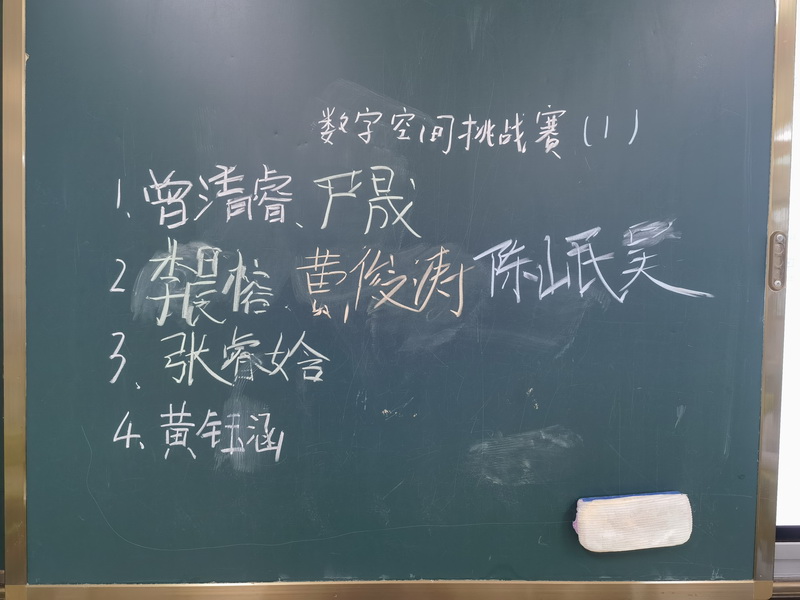 数字空间挑战赛(1)
1.曾清睿、严晟
2 李晨榕、黄俊涛 陈岷昊
3、张睿姶
4、黄钰涵